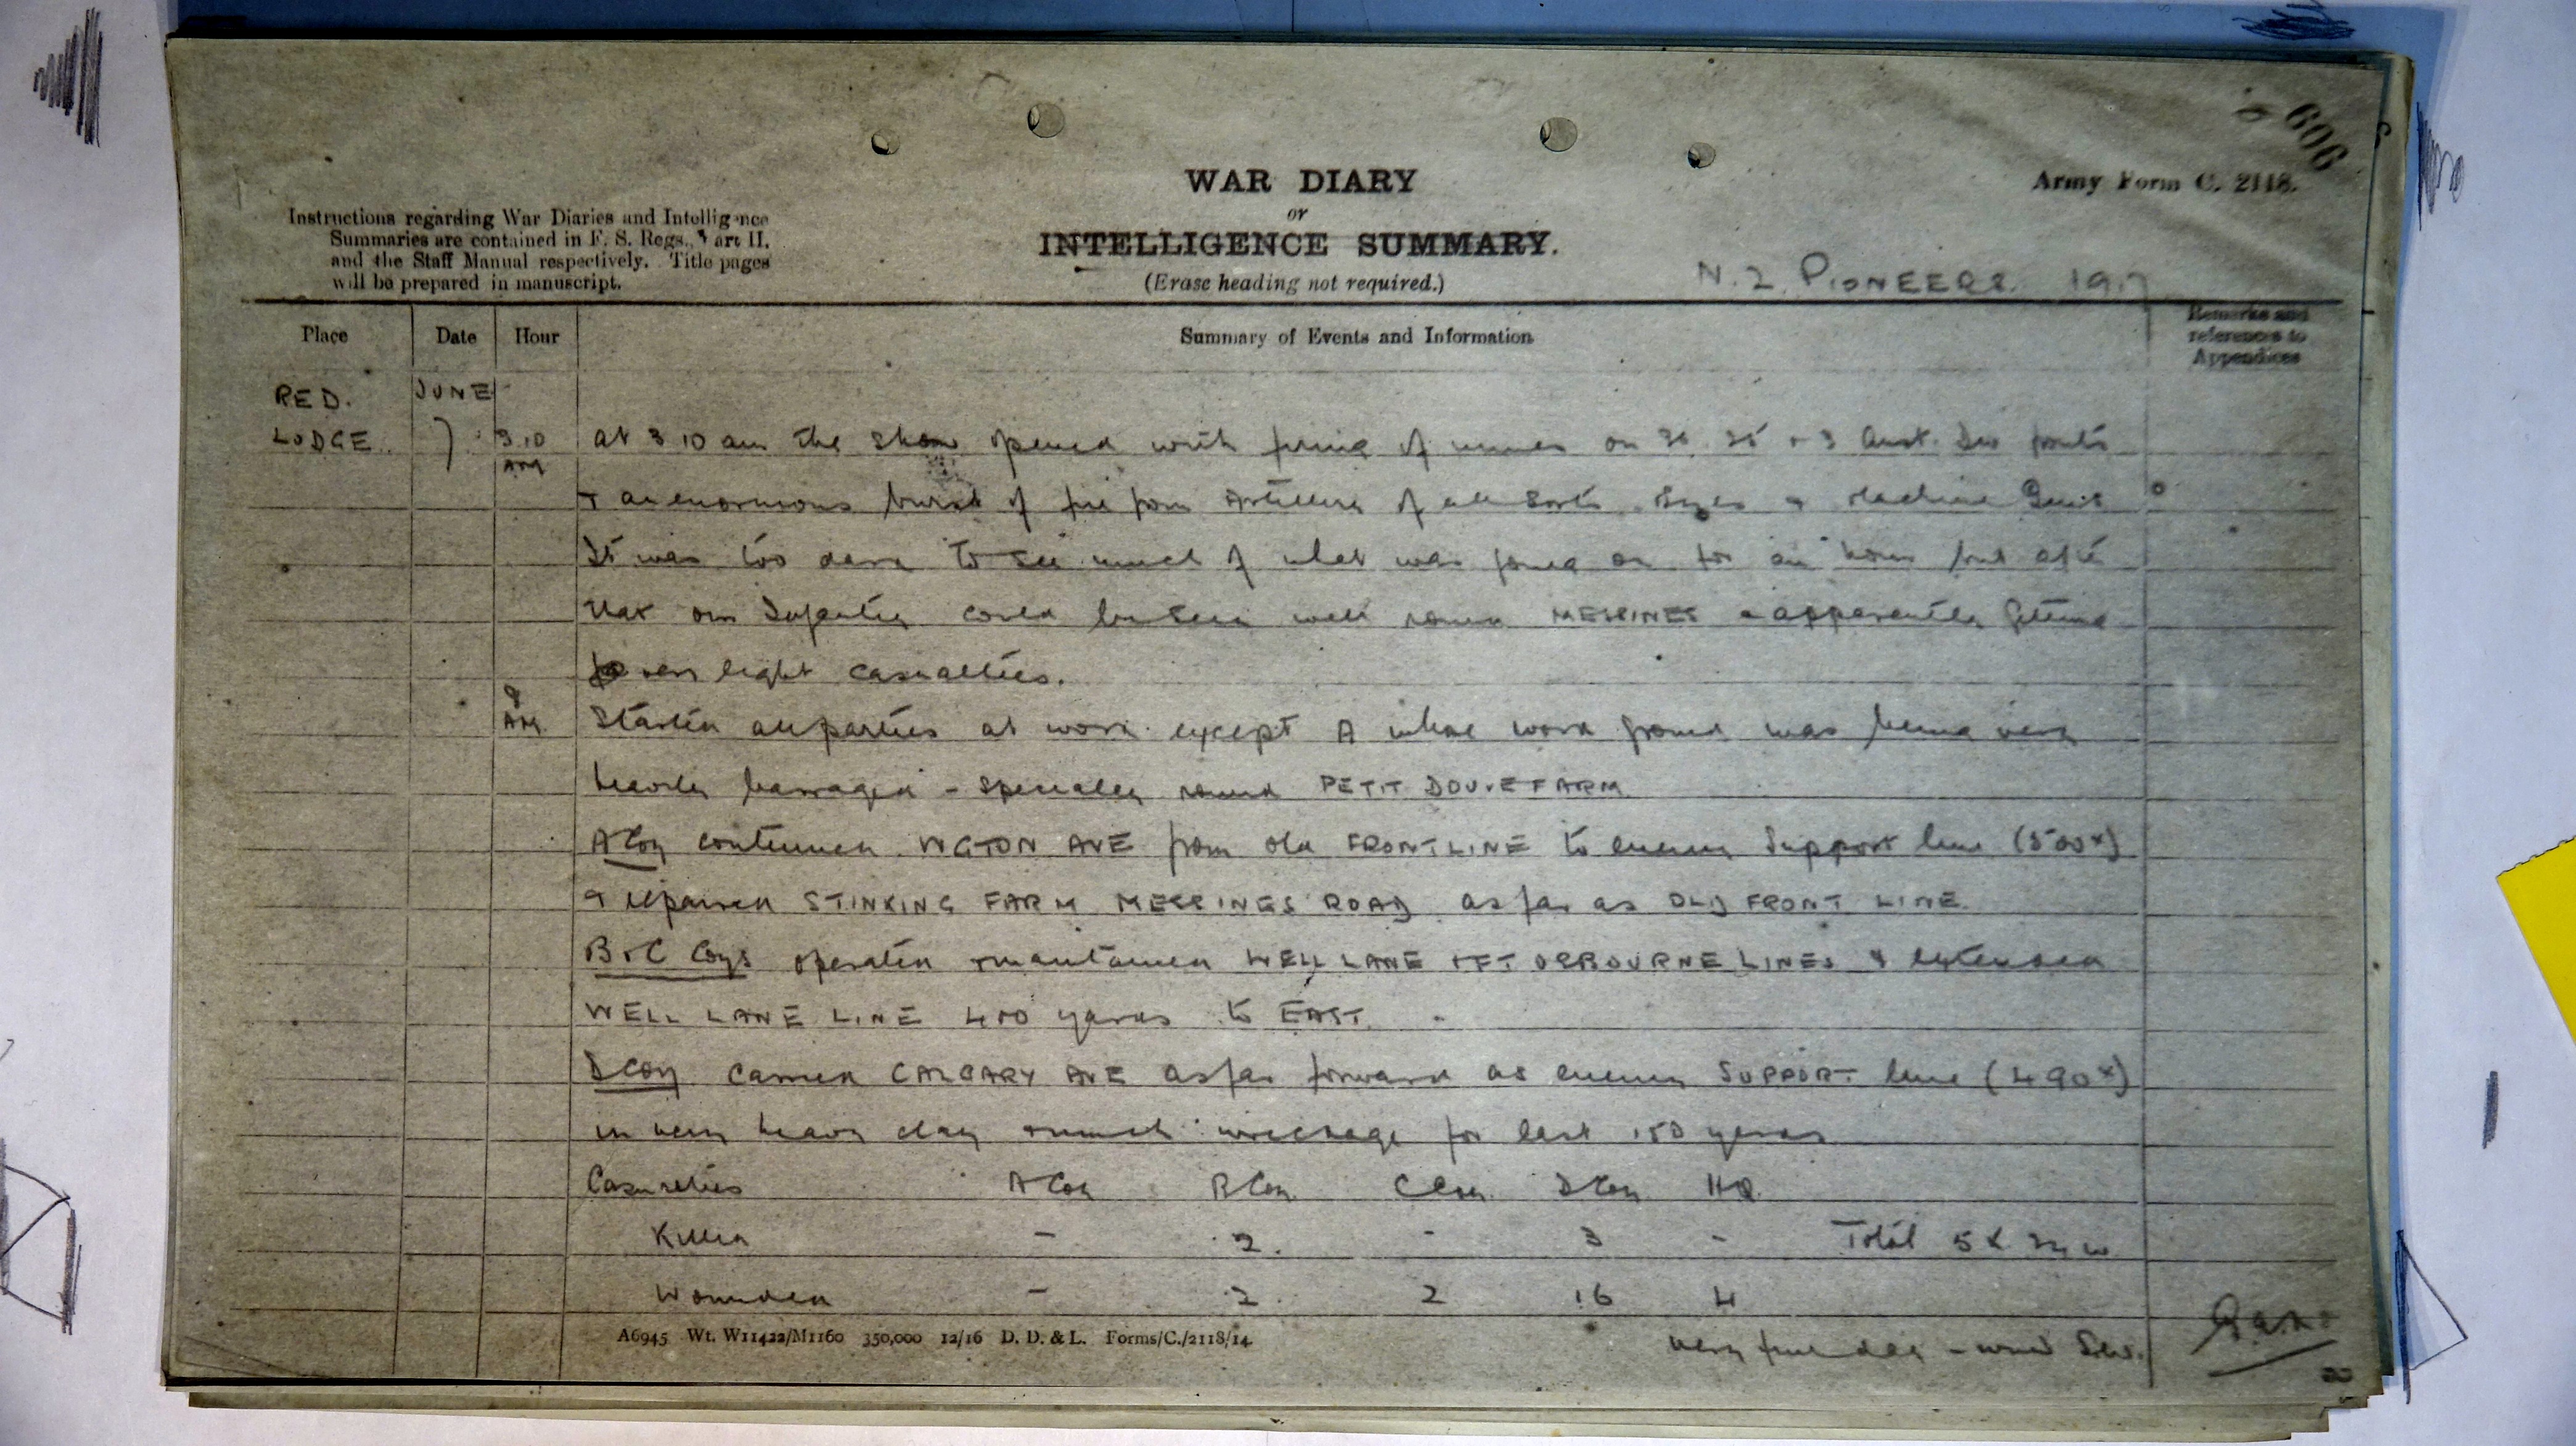 606
WAR DIARY
or
INTELLIGENCE SUMMARY.
(Erase heading not required.)
Army Form C. 2118.
Instructions regarding War Diaries and Intelligence
Summaries are contained in F. S. Regs., Part II.
and the Staff Manual respectively. Title pages
will be prepared in manuscript.
N.Z. PIONEERS 1917
Place Date Hour Summary of Events and Information Remarks and references to Appendices
RED. JUNE
LODGE. 7 3.10 AM at 3 10 am the show opened with firing of mines on 36. 25 + 3 Aust. Div fronts
+ an enormous burst of fire from Artillery of all sorts sizes + Machine Guns
It was too dark to see much of what was going on for an hour but after
that our Infantry could be seen well round MESSINES + apparently getting
very light casualties.
9 AM Started all parties at work except A whose work ground was being very
heavily barraged - specially round PETIT DOUVE FARM
A Coy continued WGTON AVE from old FRONT LINE to enemy Support line (500x)
+ repaired STINKING FARM MESSINES ROAD as far as OLD FRONT LINE.
B + C Coys operated + maintained WELL LANE + FT OSBOURNE LINES + extended
WELL LANE LINE 400 yards to EAST.
D Coy carried CALGARY AVE as far forward as enemy SUPPORT line (490x)
in very heavy clay + much wreckage for last 150 yards
Casualties A Coy B Coy C Coy D Coy HQ
Killed - 2. - 3 - Total 5 K 24 W
Wounded - 2. 2 16 4
A6945 Wt. W11422/M1160 350,000 12/16 D. D. & L. Forms/C./2118/14
Very fine day - wind